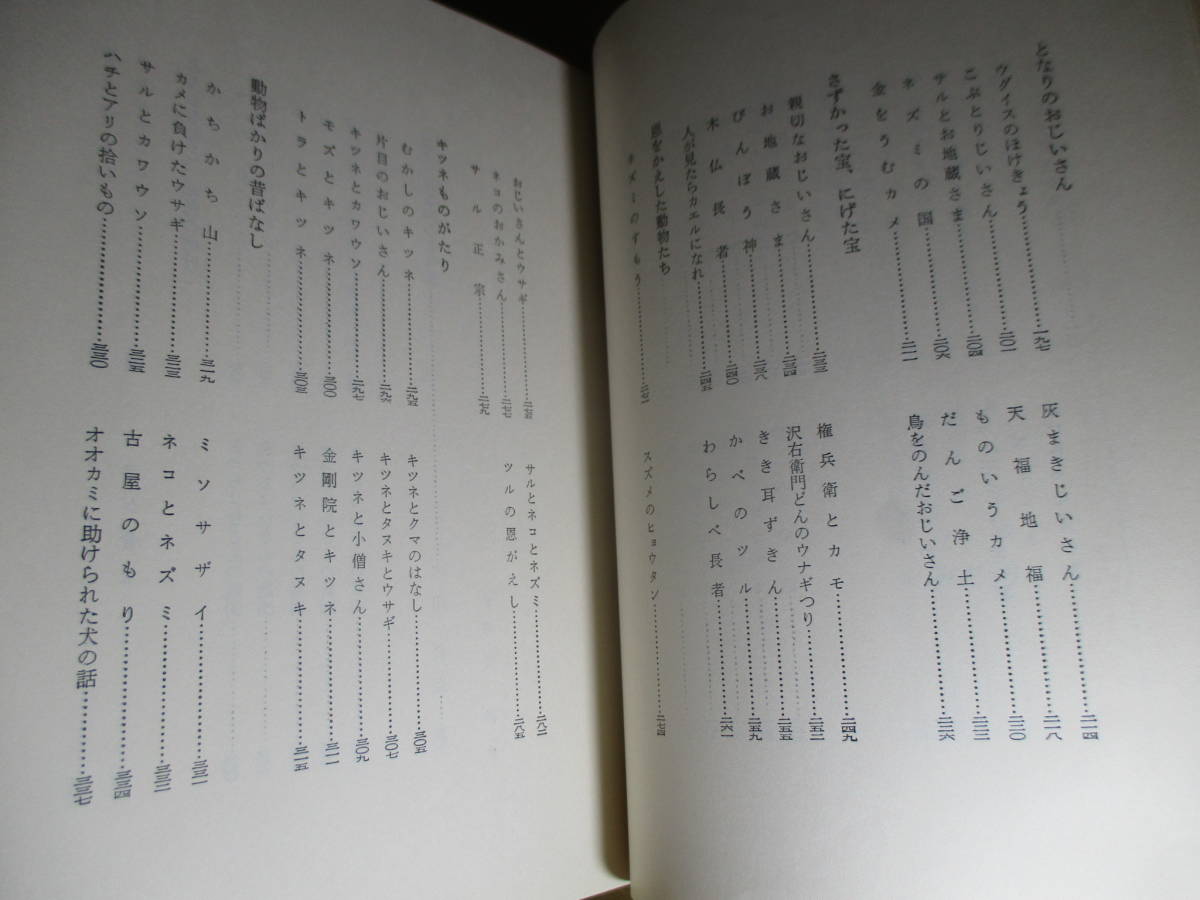 となりのおじいさん
ウグイスのほけきょう…………一九七
こぶとりじいさん…………二〇一
サルとお地蔵さま…………二〇四
ネズミの国…………二〇六
金をうむカメ…………二一一
灰まきじいさん…………二一四
天福地福…………二一八
ものいうカメ…………二二〇
だんご浄土…………二二二
鳥をのんだおじいさん…………二二六
さずかった宝、にげた宝
親切なおじいさん…………二三三
お地蔵さま…………二三四
びんぼう神…………二三八
木仏長者…………二四〇
人が見たらカエルになれ…………二四五
権兵衛とカモ…………二四九
沢右衛門どんのウナギつり…………二五二
きき耳ずきん…………二五五
かべのツル…………二五九
わらしべ長者…………二六一
恩をかえした動物たち
ネズミのすもう…………二七一
スズメのヒョウタン…………二七四
おじいさんとウサギ…………二七五
ネコのおかみさん…………二七七
サル正宗…………二七九
サルとネコとネズミ…………二八二
ツルの恩がえし…………二八五
キツネものがたり
むかしのキツネ…………二九五
片目のおじいさん…………二九六
キツネとカワウソ…………二九七
モズとキツネ…………三〇〇
トラとキツネ…………三〇三
キツネとクマのはなし…………三〇五
キツネとタヌキとウサギ…………三〇七
キツネと小僧さん…………三〇九
金剛院とキツネ…………三一一
キツネとタヌキ…………三一五
動物ばかりの昔ばなし
かちかち山…………三一九
カメに負けたウサギ…………三二三
サルとカワウソ…………三二五
ハチとアリの拾いもの…………三三〇
ミソサザイ…………三三一
ネコとネズミ…………三三二
古屋のもり…………三三四
オオカミに助けられた犬の話…………三三七